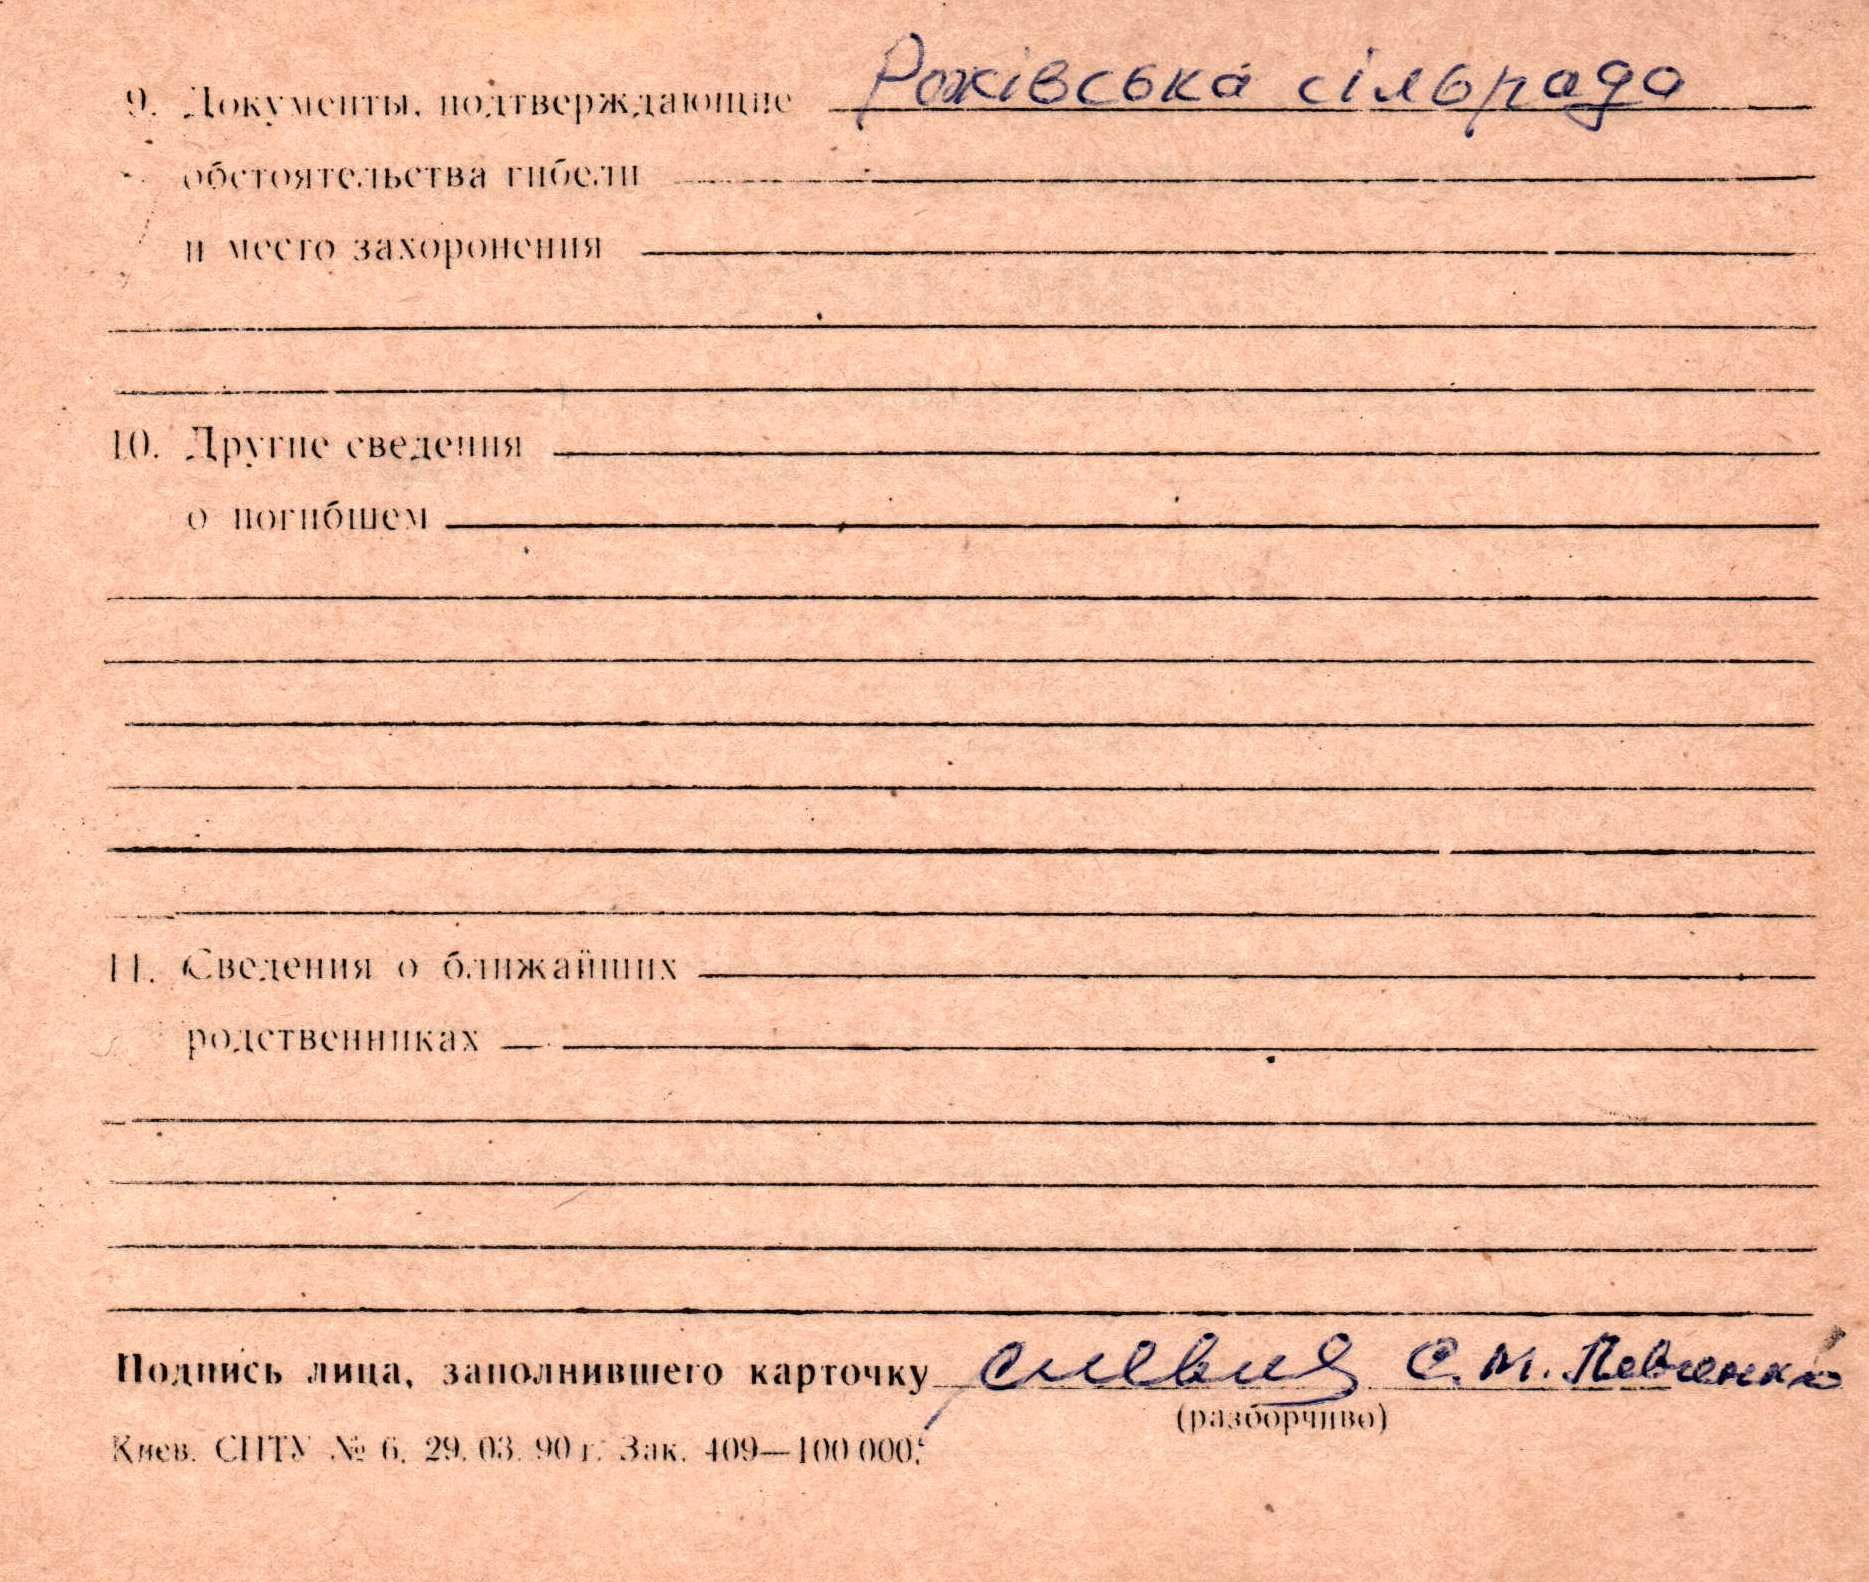 9. Документы, подтверждающие Рожівська сільрада
обстоятельства гибели
и место захоронения
10. Другие сведения
о погибшем
11. Сведения о ближайших
родственниках
Подпись лица, заполнившего карточку С. М. Певченко
(разборчиво)
Киев. СПТУ № 6. 29. 03. 90 г. Зак. 409—100 000.